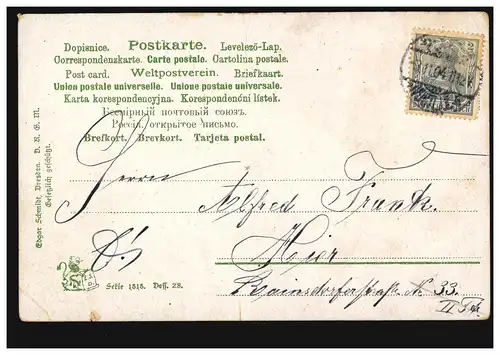 Dopisnice. Postkarte. Levelező-Lap.
Correspondenzkarte. Carte postale. Cartolina postale.
Post card. Weltpostverein. Briefkaart.
Union postale universelle. Unione postale universale.
Karta korespondencyjna. Korespondenční lístek.
Всемірный почтовый союзъ.
Россія, открытое письмо.
Brefkort. Brevkort. Tarjeta postal.
Edgar Schmidt, Dresden. D. R. G. M.
Gesetzlich geschützt.
Herrn
Alfred Frank
Hier
Rainsdorferstraße № 33.
Serie 1515. Dess. 28.